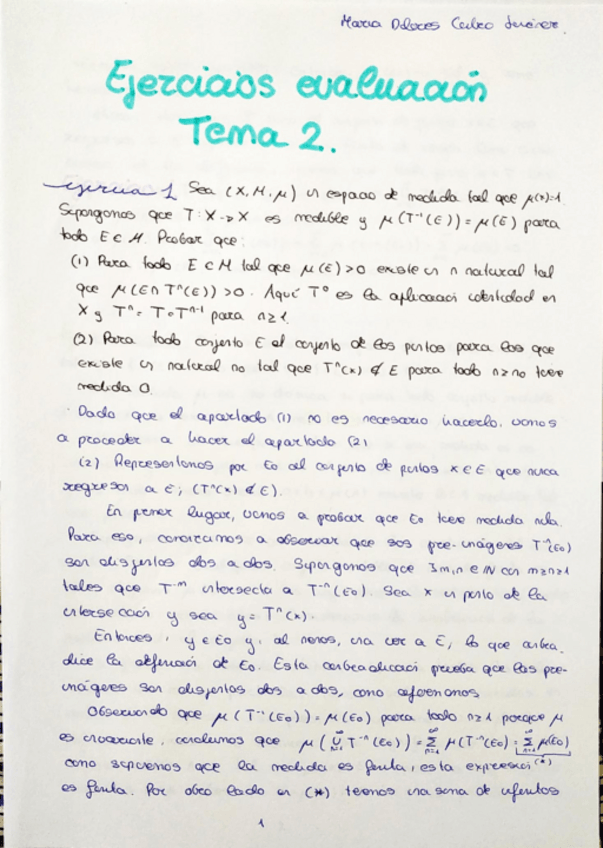 Maria Dolores
Ejercicios evaluación
Tema 2.
Ejercicio 1 Sea (X, M, μ) un espacio de medida tal que μ(X)=1.
Supongamos que T: X -> X es medible y μ(T⁻¹(E)) = μ(E) para
todo E ⊂ M. Probar que:
(1) Para todo E ⊂ M tal que μ(E)>0 existe un n natural tal
que μ(E∩Tⁿ(E))>0. Aquí T⁰ es la aplicación identidad en
X y Tⁿ = T∘Tⁿ⁻¹ para n≥1.
(2) Para todo conjunto E el conjunto de los puntos para los que
existe un natural no tal que Tⁿ(x) ∉ E para todo n≥no tiene
medida 0.
· Dado que el apartado (1) no es necesario hacerlo, vamos
a proceder a hacer el apartado (2)
(2) Representamos por Eo al conjunto de puntos x∈E que nunca
regresan a E, (Tⁿ(x) ∉ E).
En primer lugar, vamos a probar que Eo tiene medida nula.
Para eso, comenzamos a observar que sus pre-imágenes T⁻ⁿ(Eo)
son disjuntas dos a dos. Supongamos que ∃m,n ∈ ℕ con m>n≥1
tales que T⁻ᵐ intersecta a T⁻ⁿ(Eo). Sea x un punto de la
intersección y sea y = Tⁿ(x).
Entonces, y∈Eo y, al menos, una vez a E, lo que contra-
dice la definición de Eo. Esta contradicción prueba que las pre-
imágenes son disjuntas dos a dos, como afirmamos
Observando que μ(T⁻ⁿ(Eo)) = μ(Eo) para todo n≥1 porque μ
es invariante, concluimos que μ(⋃ₙ₌₁^∞ T⁻ⁿ(Eo)) = ∑ₙ₌₁^∞ μ(T⁻ⁿ(Eo) = ∑ₙ₌₁^∞ μ(Eo)
como suponemos que la medida es finita, esta expresión (*)
es finita. Por otro lado en (*) tenemos una suma de infinitos
1